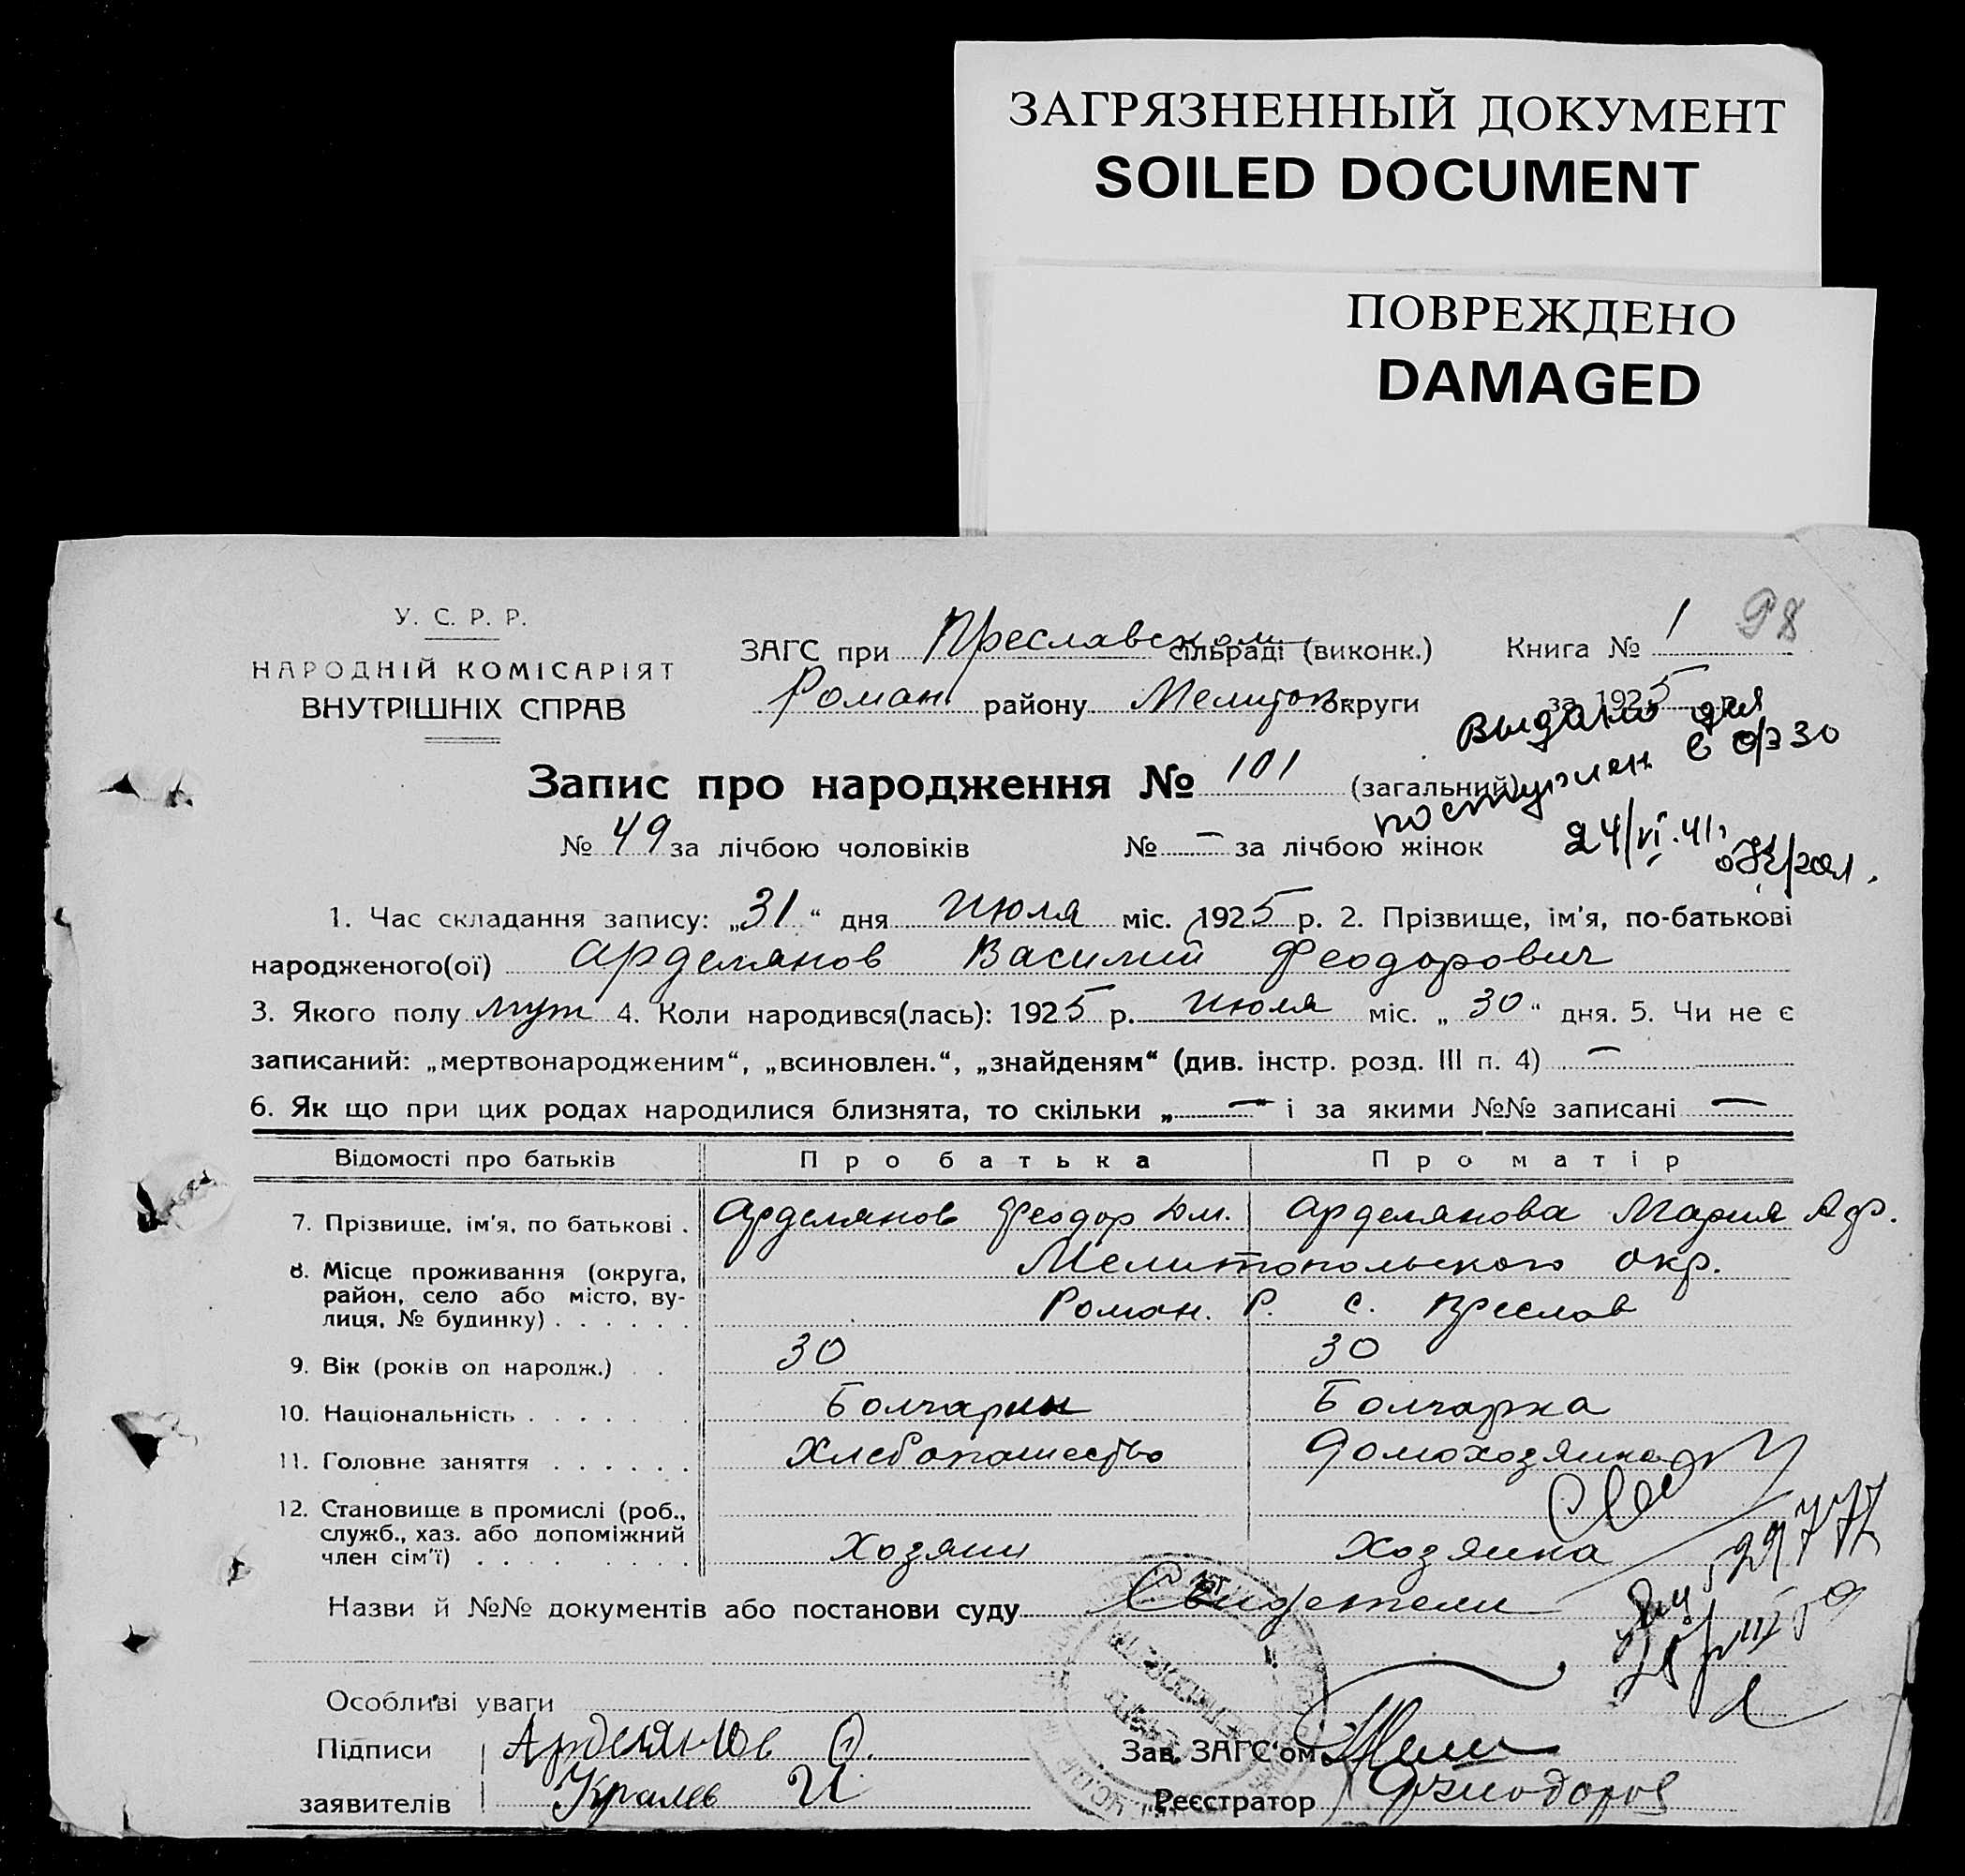 ЗАГРЯЗНЕННЫЙ ДОКУМЕНТ
SOILED DOCUMENT
ПОВРЕЖДЕНО
DAMAGED
У. С. Р. Р.
НАРОДНІЙ КОМІСАРІЯТ
ВНУТРІШНІХ СПРАВ
ЗАГС при Преславском сільраді (виконк.) Книга № 1 98
Роман. району Мелитоп. округи за 1925
Выдано для
Запис про народження № 101 (загальний)
№ 49 за лічбою чоловіків № — за лічбою жінок
24/VI.41
1. Час складання запису: „31“ дня Июля міс. 1925 р. 2. Прізвище, ім'я, по-батькові
народженого(ої) Арделянов Василий Феодорович
3. Якого полу муж 4. Коли народився(лась): 1925 р. Июля міс. „30“ дня. 5. Чи не є
записаний: „мертвонародженим“, „всиновлен.“, „знайденям“ (див. інстр. розд. III п. 4) —
6. Як що при цих родах народилися близнята, то скільки „—“ і за якими №№ записані —
Відомості про батьків Про батька Про матір
7. Прізвище, ім'я, по батькові . Арделянов Феодор Дм. Арделянова Мария Аф.
8. Місце проживання (округа, район, село або місто, вулиця, № будинку) . . . . . . Мелитопольского окр.
Роман. Р. С. Преслав
9. Вік (років од народж.) . . 30 30
10. Національність . . . . . . Болчарин Болчарка
11. Головне заняття . . . . . . Хлебопашество Домохозяйка
12. Становище в промислі (роб., служб., хаз. або допоміжний член сім'ї) . . . . . . . Хозяин Хозяйка
Назви й №№ документів або постанови суду Свидетели
Особливі уваги
Підписи Арделянов Ф.
заявителів Кралев И
Зав. ЗАГС'ом
Реєстратор